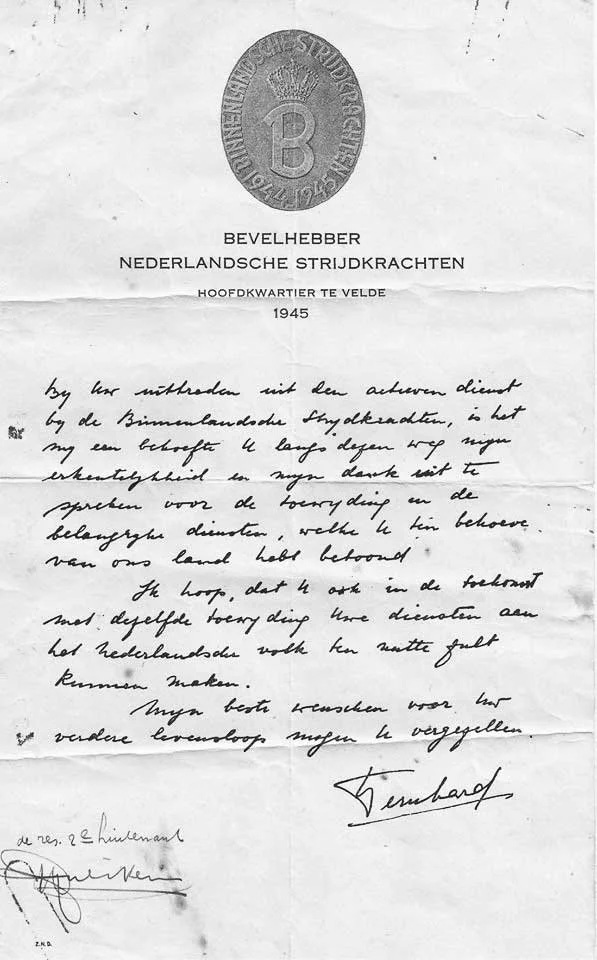 BINNENLANDSCHE STRIJDKRACHTEN
1944 1945
B
BEVELHEBBER
NEDERLANDSCHE STRIJDKRACHTEN
HOOFDKWARTIER TE VELDE
1945
By Uw uittreden uit den actieven dienst
by de Binnenlandsche Strydkrachten, is het
my een behoefte U langs dezen weg myn
erkentelykheid en myn dank uit te
spreken voor de toewyding en de
belangryke diensten, welke U ten behoeve
van ons land hebt betoond.
Ik hoop, dat U ook in de toekomst
met dezelfde toewyding Uwe diensten aan
het Nederlandsche volk ten nutte zult
kunnen maken.
Myn beste wenschen voor Uw
verdere levensloop mogen U vergezellen.
Bernhard
de res. 2e luitenant
Z.N.D.